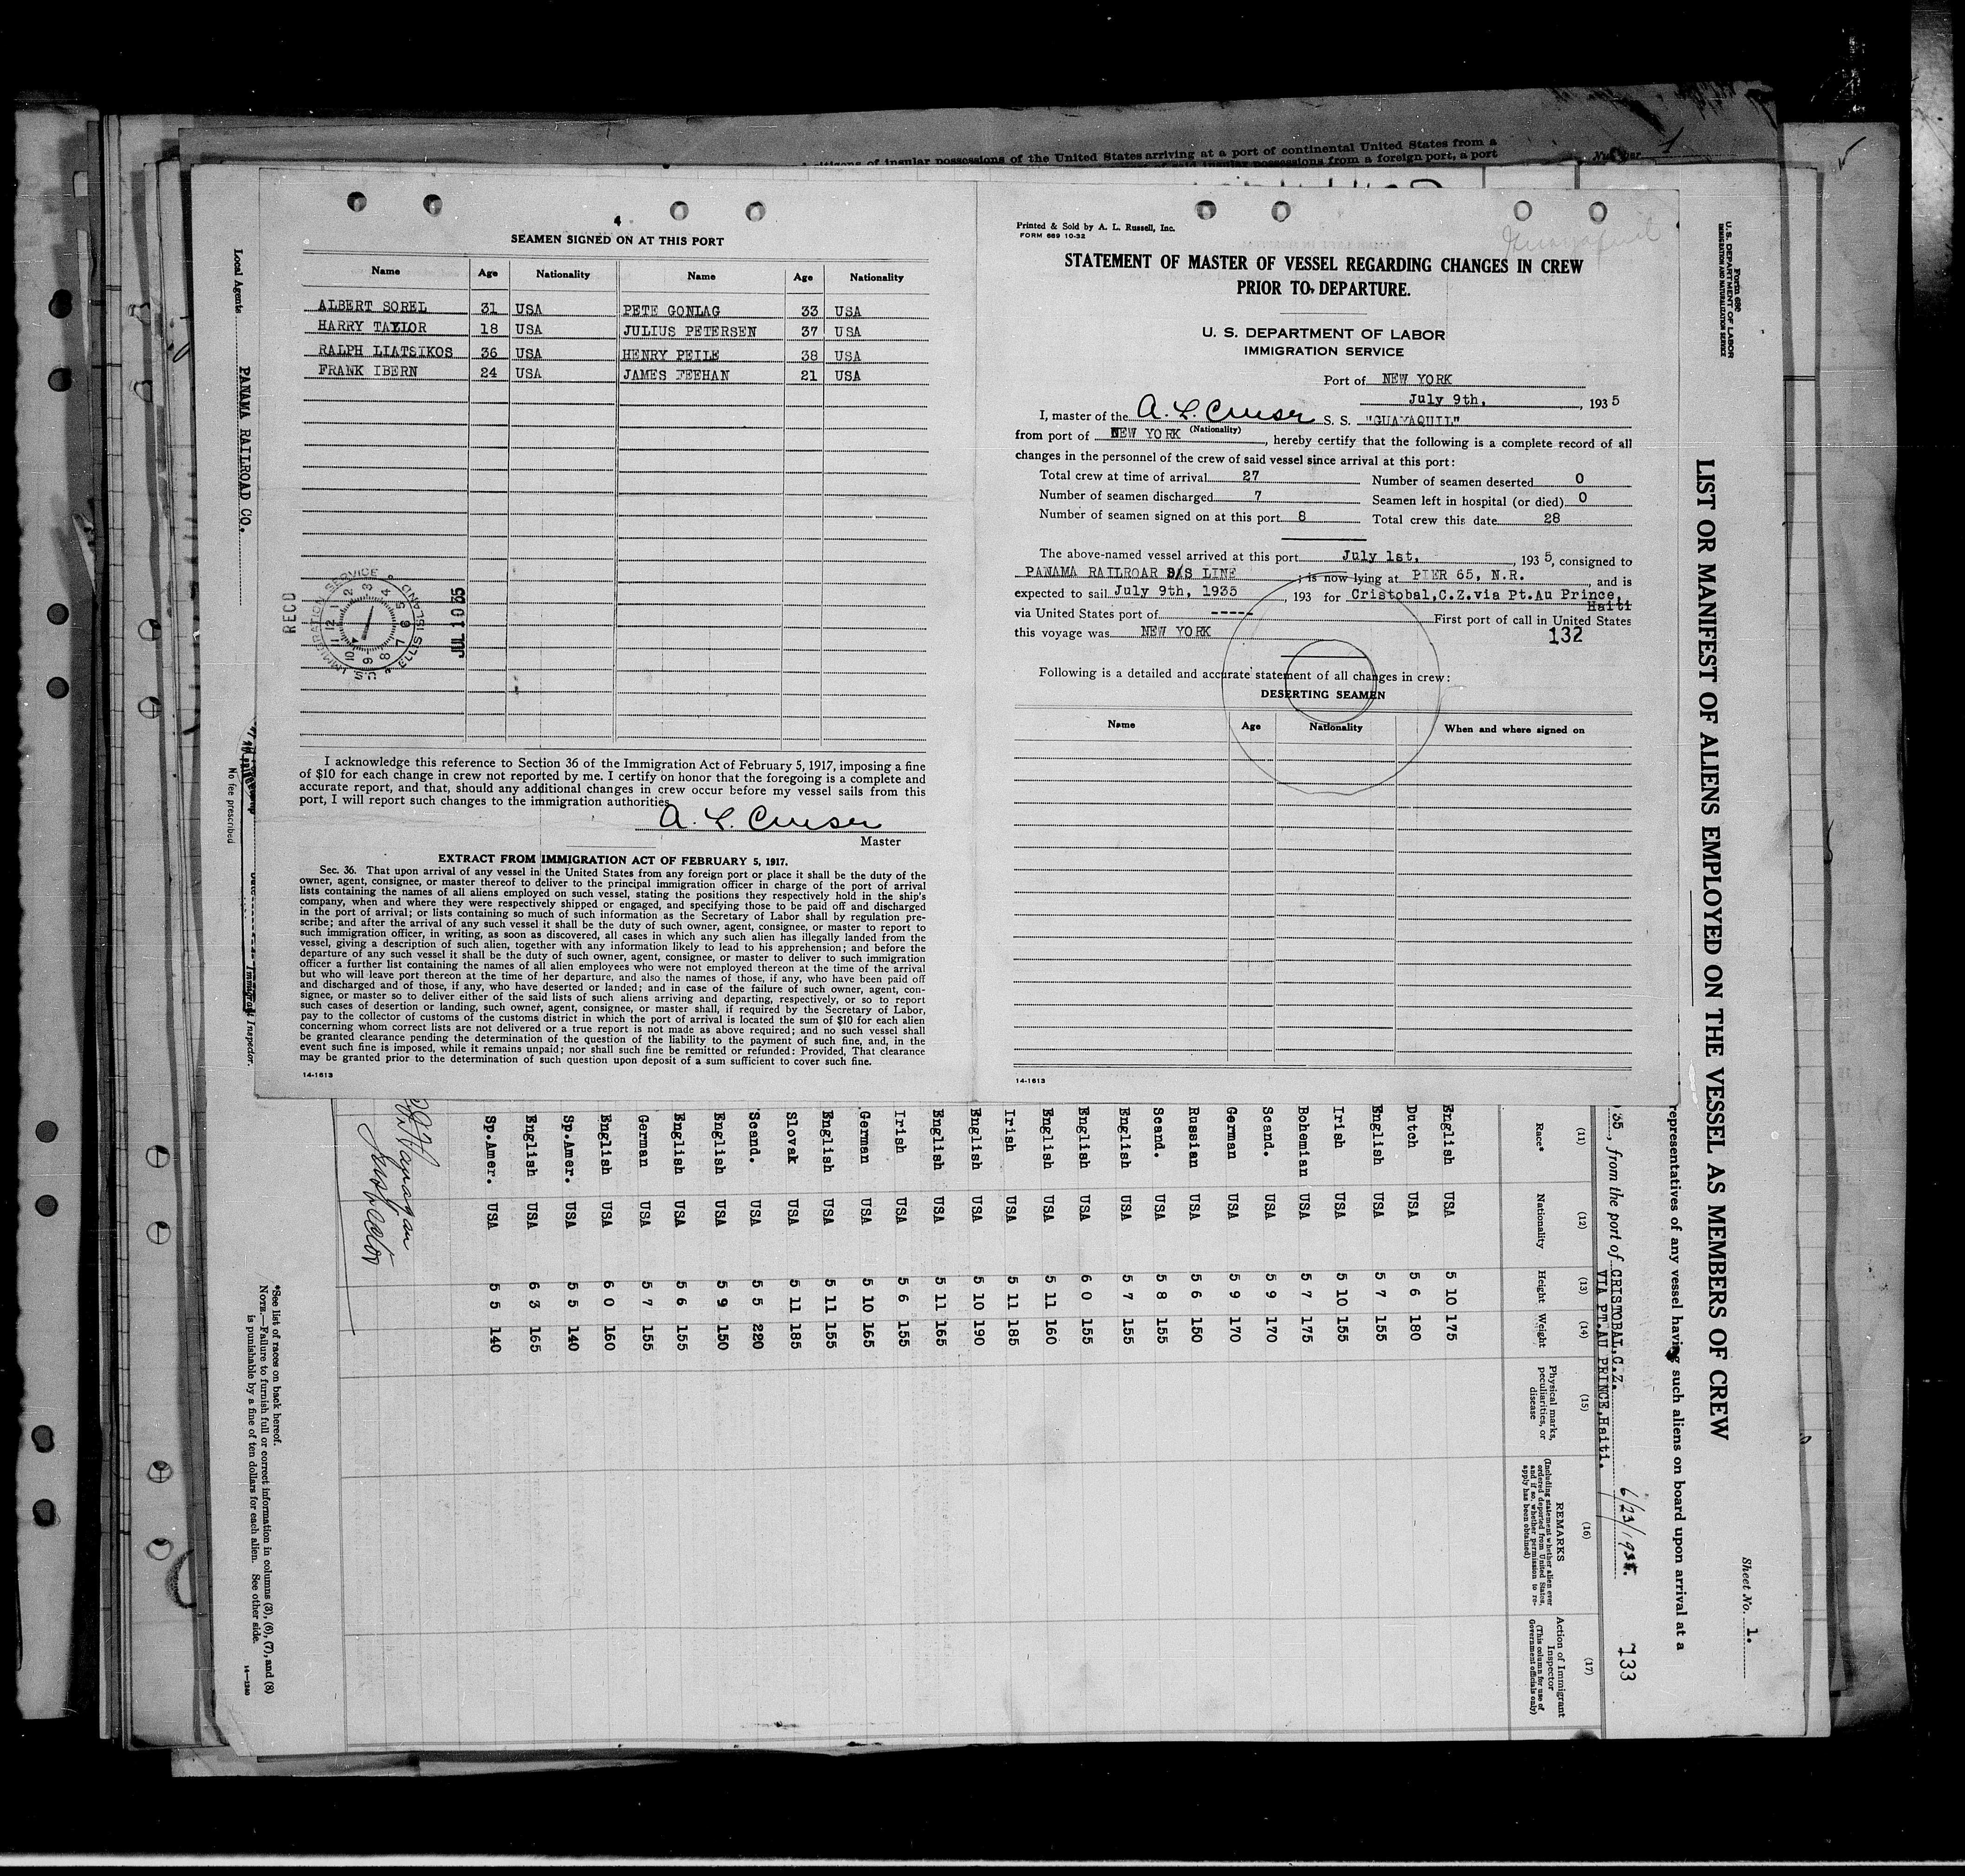 citizens of insular possessions of the United States arriving at a port of continental United States from a
of said insular possessions from a foreign port, a port
Number
1
4
SEAMEN SIGNED ON AT THIS PORT
Name Age Nationality Name Age Nationality
ALBERT SOREL 31 USA PETE GONLAG 33 USA
HARRY TAYLOR 18 USA JULIUS PETERSEN 37 USA
RALPH LIATSIKOS 36 USA HENRY PEILE 38 USA
FRANK IBERN 24 USA JAMES FEEHAN 21 USA
RECD
U.S. IMMIGRATION SERVICE ELLIS ISLAND
1 2 3 4 5 6 7 8 9 10 11 12
JUL 10 35
I acknowledge this reference to Section 36 of the Immigration Act of February 5, 1917, imposing a fine
of $10 for each change in crew not reported by me. I certify on honor that the foregoing is a complete and
accurate report, and that, should any additional changes in crew occur before my vessel sails from this
port, I will report such changes to the immigration authorities.
A. L. Cruser
Master
EXTRACT FROM IMMIGRATION ACT OF FEBRUARY 5, 1917.
Sec. 36. That upon arrival of any vessel in the United States from any foreign port or place it shall be the duty of the
owner, agent, consignee, or master thereof to deliver to the principal immigration officer in charge of the port of arrival
lists containing the names of all aliens employed on such vessel, stating the positions they respectively hold in the ship's
company, when and where they were respectively shipped or engaged, and specifying those to be paid off and discharged
in the port of arrival; or lists containing so much of such information as the Secretary of Labor shall by regulation pre-
scribe; and after the arrival of any such vessel it shall be the duty of such owner, agent, consignee, or master to report to
such immigration officer, in writing, as soon as discovered, all cases in which any such alien has illegally landed from the
vessel, giving a description of such alien, together with any information likely to lead to his apprehension; and before the
departure of any such vessel it shall be the duty of such owner, agent, consignee, or master to deliver to such immigration
officer a further list containing the names of all alien employees who were not employed thereon at the time of the arrival
but who will leave port thereon at the time of her departure, and also the names of those, if any, who have been paid off
and discharged and of those, if any, who have deserted or landed; and in case of the failure of such owner, agent, con-
signee, or master so to deliver either of the said lists of such aliens arriving and departing, respectively, or so to report
such cases of desertion or landing, such owner, agent, consignee, or master shall, if required by the Secretary of Labor,
pay to the collector of customs of the customs district in which the port of arrival is located the sum of $10 for each alien
concerning whom correct lists are not delivered or a true report is not made as above required; and no such vessel shall
be granted clearance pending the determination of the question of the liability to the payment of such fine, and, in the
event such fine is imposed, while it remains unpaid; nor shall such fine be remitted or refunded: Provided, That clearance
may be granted prior to the determination of such question upon deposit of a sum sufficient to cover such fine.
14-1613
Printed & Sold by A. L. Russell, Inc.
FORM 689 10-32
Guayaquil
STATEMENT OF MASTER OF VESSEL REGARDING CHANGES IN CREW
PRIOR TO DEPARTURE.
U. S. DEPARTMENT OF LABOR
IMMIGRATION SERVICE
Port of NEW YORK
July 9th, , 1935
I, master of the A. L. Cruser S. S. "GUAYAQUIL"
(Nationality)
from port of NEW YORK , hereby certify that the following is a complete record of all
changes in the personnel of the crew of said vessel since arrival at this port:
Total crew at time of arrival 27 Number of seamen deserted 0
Number of seamen discharged 7 Seamen left in hospital (or died) 0
Number of seamen signed on at this port 8 Total crew this date 28
The above-named vessel arrived at this port July 1st, , 1935, consigned to
PANAMA RAILROAR S/S LINE ; is now lying at PIER 65, N.R. , and is
expected to sail July 9th, 1935 , 193 for Cristobal,C.Z.via Pt.Au Prince,
Haiti
via United States port of ----- First port of call in United States
this voyage was NEW YORK
132
Following is a detailed and accurate statement of all changes in crew:
DESERTING SEAMEN
Name Age Nationality When and where signed on
14-1613
Form 680
U. S. DEPARTMENT OF LABOR
IMMIGRATION AND NATURALIZATION SERVICE
LIST OR MANIFEST OF ALIENS EMPLOYED ON THE VESSEL AS MEMBERS OF CREW
Sheet No. 1.
representatives of any vessel having such aliens on board upon arrival at a
35, from the port of CRISTOBAL,C.Z. 6/23/1935.
VIA PT.AU PRINCE,Haiti.
133
(11) (12) (13) (14) (15) (16) (17)
Race* Nationality Height Weight Physical marks, peculiarities, or disease
REMARKS
(Including statement whether alien ever ordered deported from United States, and if so, whether permission to re-apply has been obtained)
Action of Immigrant Inspector
(This column for use of Government officials only)
English USA 5 10 175
Dutch USA 5 6 180
English USA 5 7 155
Irish USA 5 10 155
Bohemian USA 5 7 175
Scand. USA 5 9 170
German USA 5 9 170
Russian USA 5 6 150
Scand. USA 5 8 155
English USA 5 7 155
English USA 6 0 155
English USA 5 11 160
Irish USA 5 11 185
English USA 5 10 190
English USA 5 11 165
Irish USA 5 6 155
German USA 5 10 165
English USA 5 11 155
Slovak USA 5 11 185
Scand. USA 5 5 220
English USA 5 9 150
English USA 5 6 155
German USA 5 7 155
English USA 6 0 160
Sp.Amer. USA 5 5 140
English USA 6 3 165
Sp.Amer. USA 5 5 140
Inspector
*See list of races on back hereof.
NOTE.—Failure to furnish full or correct information in columns (3), (6), (7), and (8)
is punishable by a fine of ten dollars for each alien. See other side.
14-1240
Local Agents PANAMA RAILROAD CO.
No fee prescribed
Immigrant Inspector.